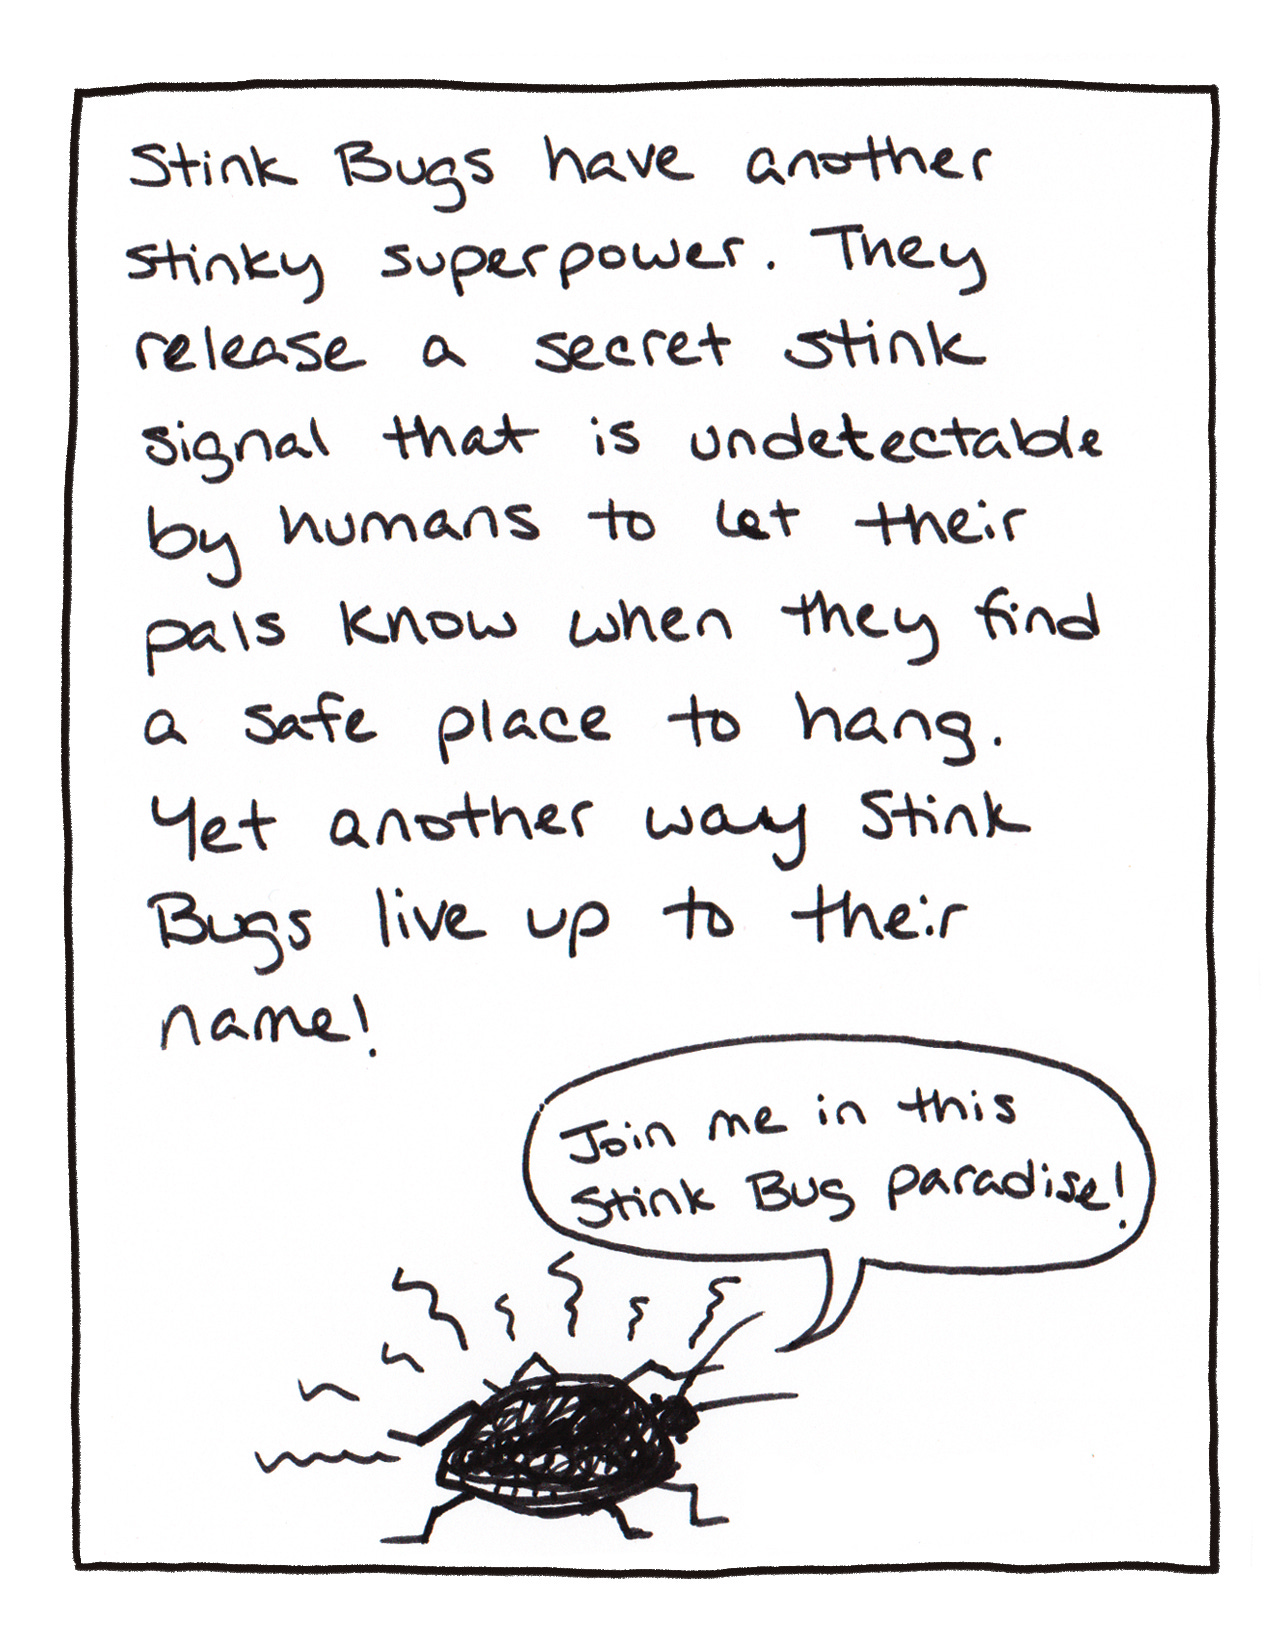 Stink Bugs have another
stinky superpower. They
release a secret stink
signal that is undetectable
by humans to let their
pals know when they find
a safe place to hang.
Yet another way Stink
Bugs live up to their
name!
Join me in this
Stink Bug paradise!